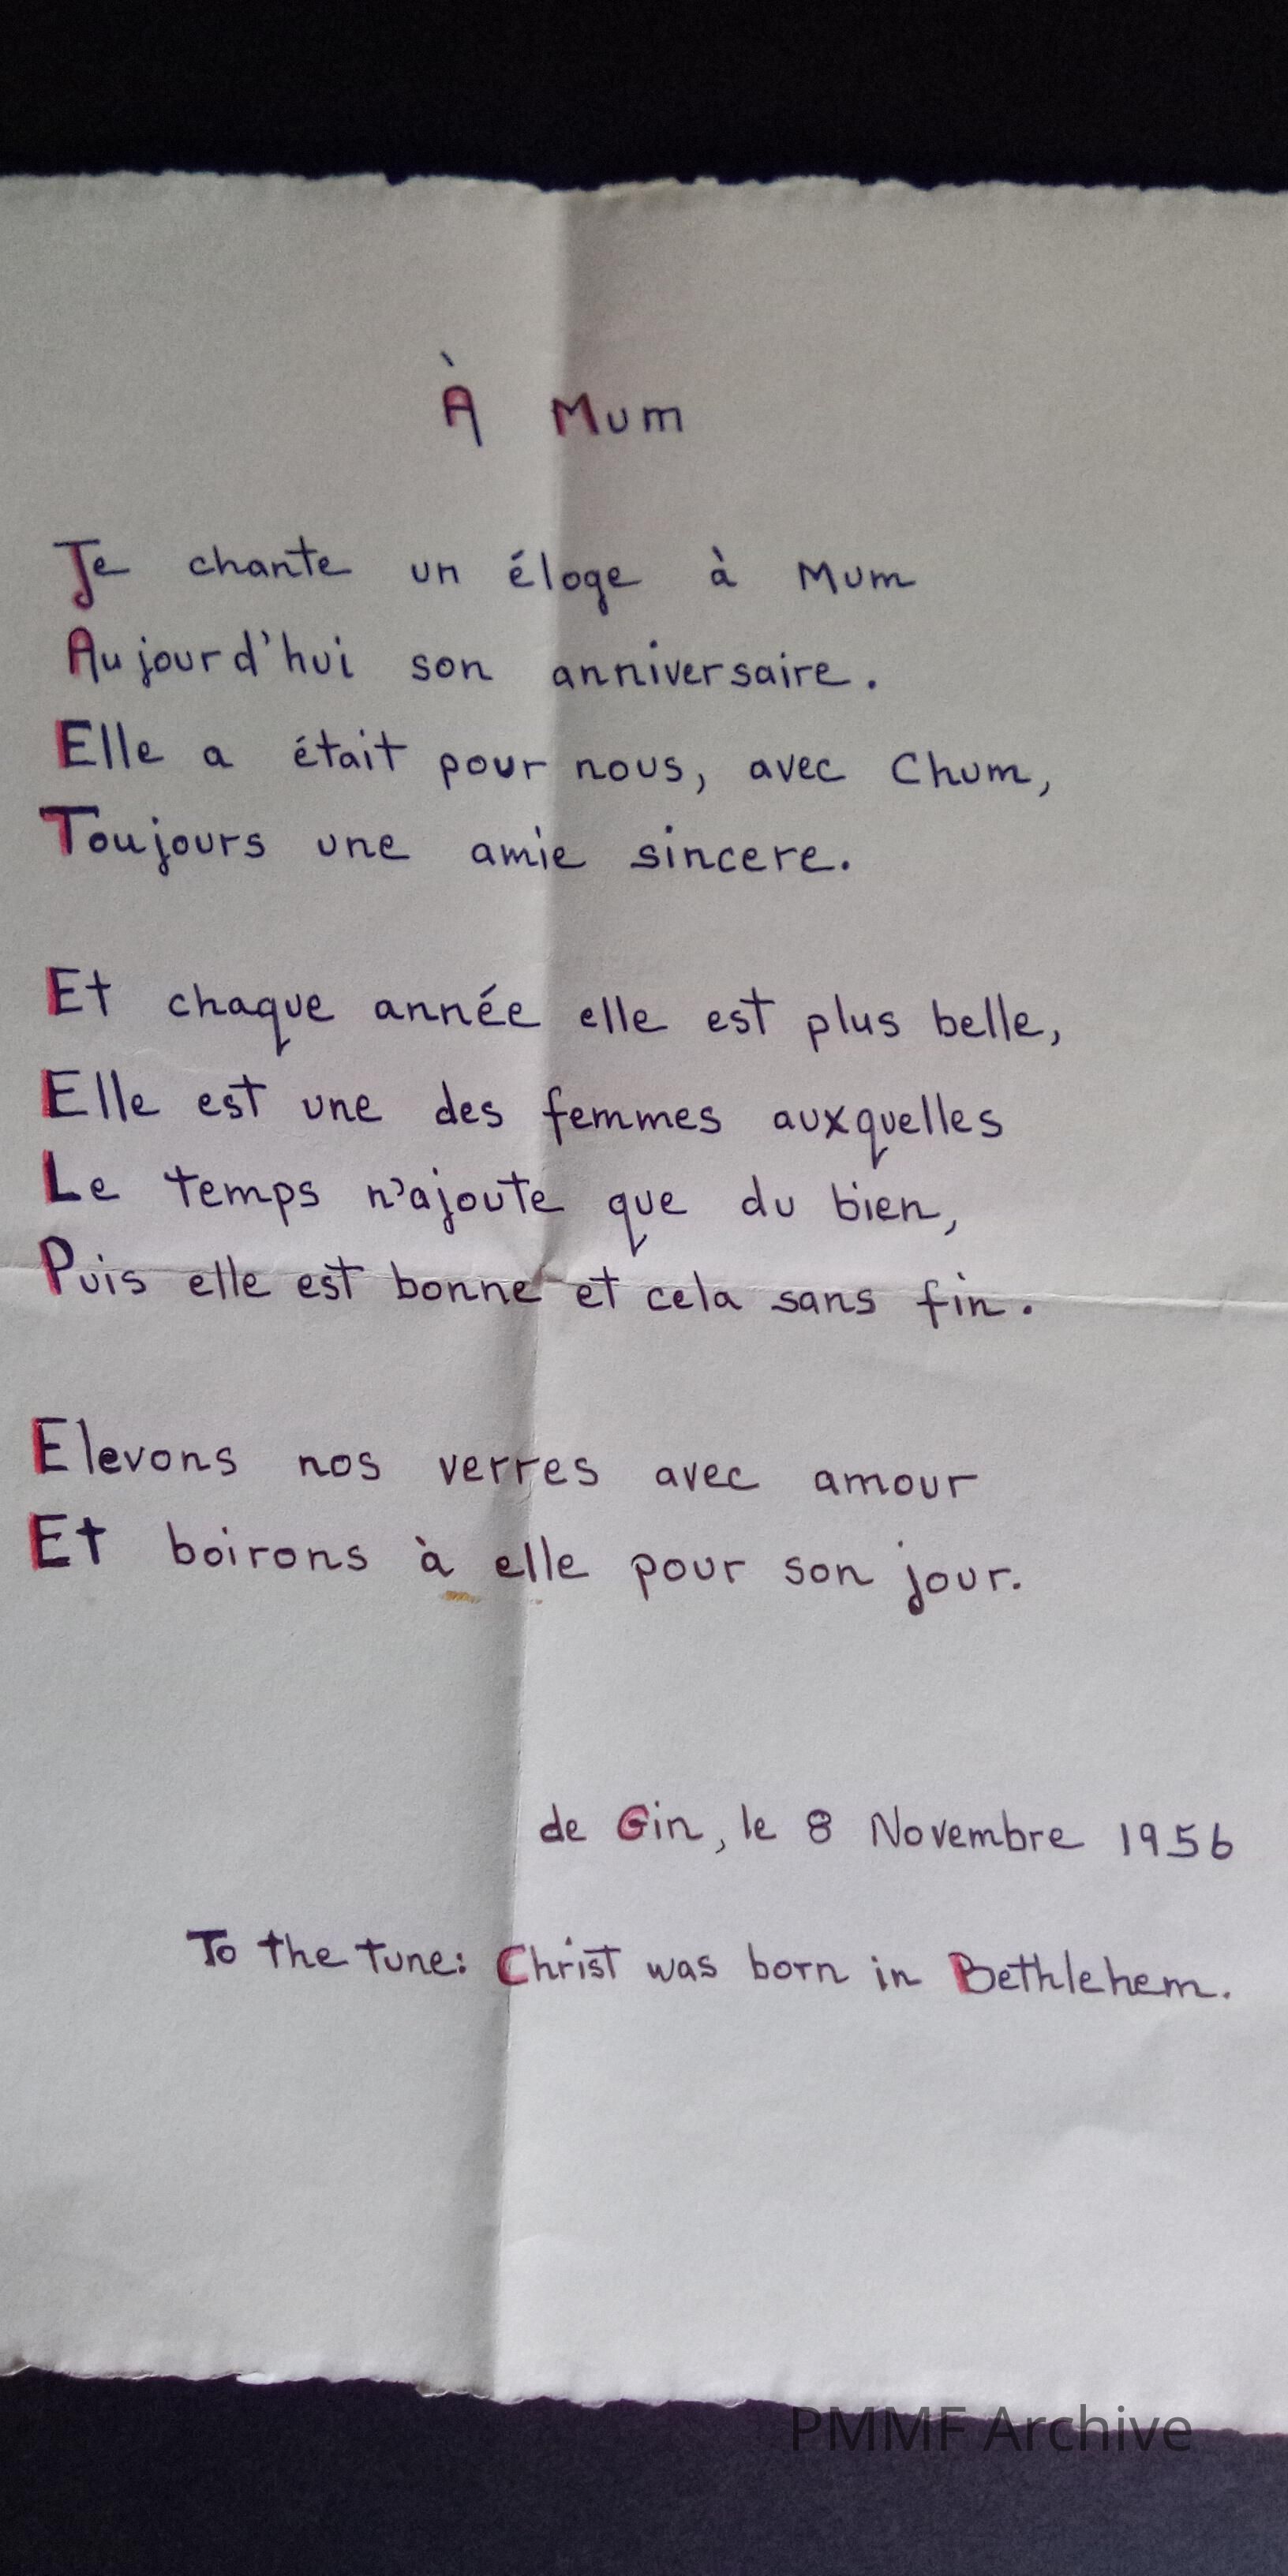 À Mum
Je chante un éloge à Mum
Aujourd'hui son anniversaire.
Elle a était pour nous, avec Chum,
Toujours une amie sincere.
Et chaque année elle est plus belle,
Elle est une des femmes auxquelles
Le temps n'ajoute que du bien,
Puis elle est bonne et cela sans fin.
Elevons nos verres avec amour
Et boirons à elle pour son jour.
de Gin, le 8 Novembre 1956
To the tune: Christ was born in Bethlehem.
PMMF Archive